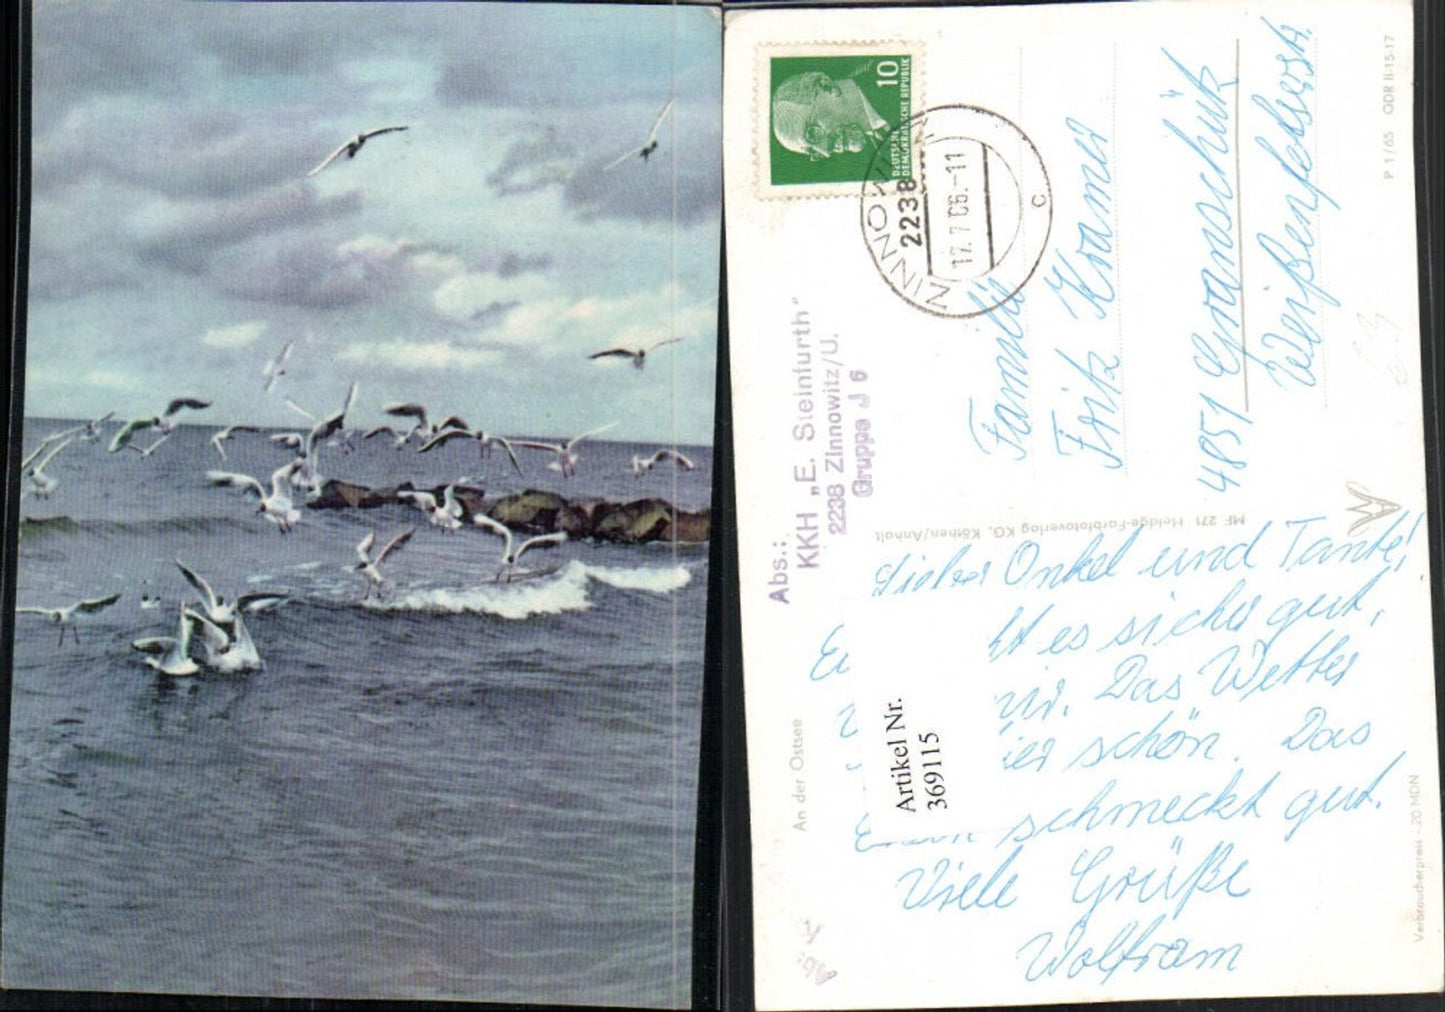 10
DEUTSCHE
DEMOKRATISCHE REPUBLIK
ZINNOWITZ
2238
17.7.66.-11
c
Abs.:
KKH „E. Steinfurth"
2238 Zinnowitz/U.
Gruppe J 6
Familie
Fritz Kramer
4851 Granschütz
Weißenfelserstr.
P 1/65 ODR II-15-17
MF 271 Heldge-Farbfotoverlag KG, Köthen/Anhalt
An der Ostsee
Verbraucherpreis -20 MDN
Lieber Onkel und Tante!
es sicher gut,
mir. Das Wetter
hier schön. Das
Essen schmeckt gut.
Viele Grüße
Wolfram
Artikel Nr.
369115